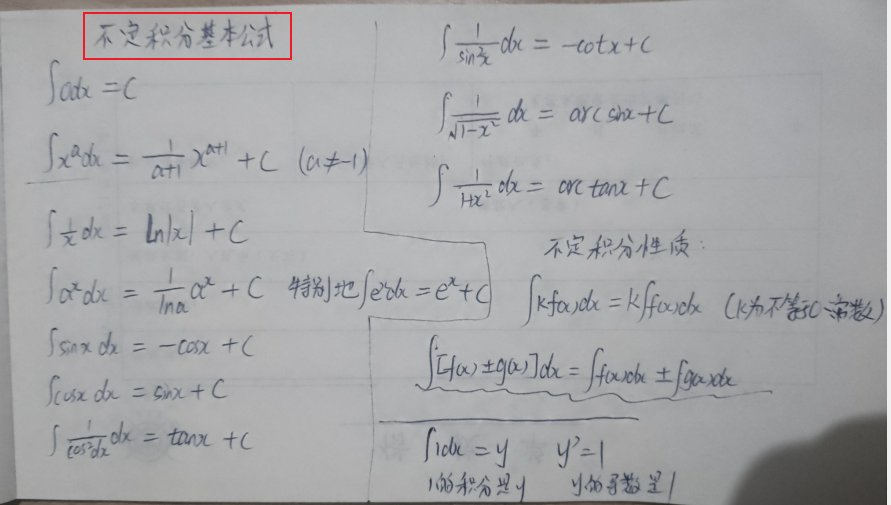 不定积分基本公式
∫0dx = C
∫xᵃdx = 1/(a+1) xᵃ⁺¹ + C (a≠-1)
∫1/x dx = ln|x| + C
∫aˣdx = 1/lna aˣ + C 特别地∫eˣdx = eˣ + C
∫sinx dx = -cosx + C
∫cosx dx = sinx + C
∫1/cos²x dx = tanx + C
∫1/sin²x dx = -cotx + C
∫1/√(1-x²) dx = arcsinx + C
∫1/(1+x²) dx = arctanx + C
不定积分性质:
∫kf(x)dx = k∫f(x)dx (k为不等于0常数)
∫[f(x)±g(x)]dx = ∫f(x)dx ± ∫g(x)dx
∫1dx = y y'=1
1的积分是y y的导数是1